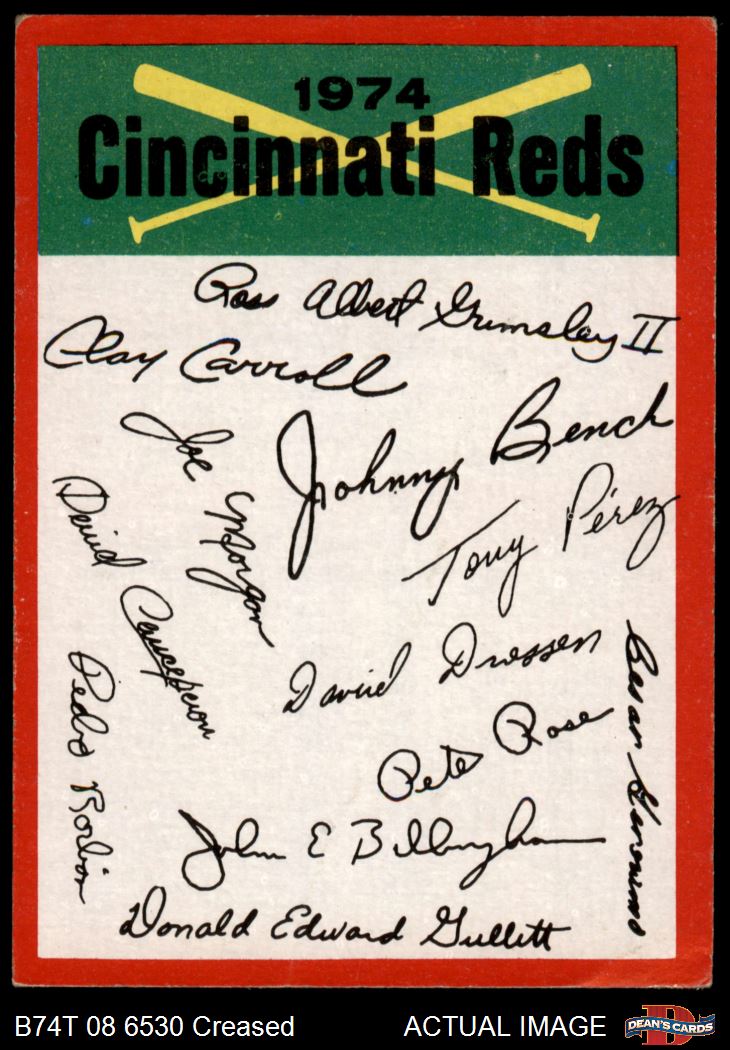 1974
Cincinnati Reds
Ross Albert Grimsley II
Clay Carroll
Johnny Bench
Joe Morgan
Tony Pérez
David Concepcion
David Driessen
Cesar Geronimo
Pedro Borbon
Pete Rose
John E Billingham
Donald Edward Gullett
B74T 08 6530 Creased
ACTUAL IMAGE
D
DEAN'S CARDS